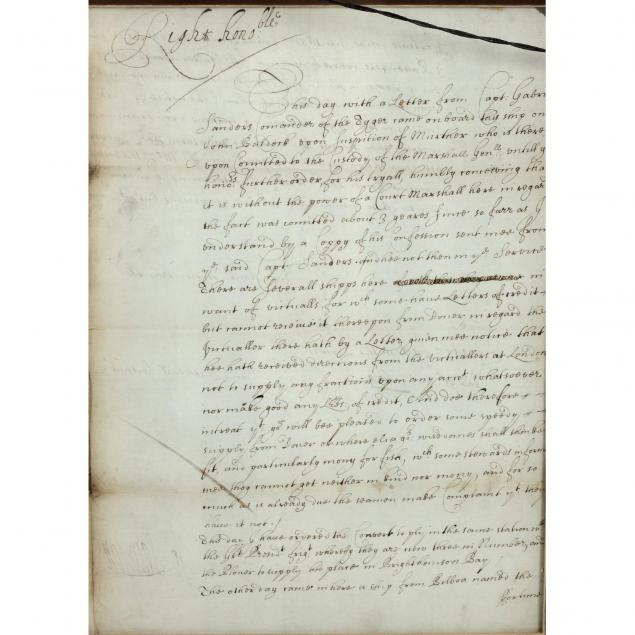 Right hono:ble
This day with a Letter from Capt: Gabr
Sanders Comander of the Tyger came on board this ship on
John upon suspition of Murther who is there
upon Comitted to the Custody of the Marshall Gen:ll untill yo
hono:rs further order, for his tryall, humbly conceiving tha
it is without the power of a Court Marshall here in regard
the fact was comitted about 3 yeares since so farr as I
understand by a Coppy of his Confession sent mee from
ye said Capt. Sanders. And hee not then in ye Service
There are severall shipps here in
want of victualls for wch some have Letters of Credit
but cannot receive it thereupon from Dover in regard the
Victualler there hath by a Letter, given mee notice that
hee hath received directions from the victuallers at London
not to supply any fractions upon any acct whatsoever
nor make good any Lres of credit, And doe therefore
intreat yt yo will bee pleased to order some speedy
supply from Dover or where else yor wisdomes shall thinke
fit, and particularly mony for fish, wch some stewards informe
mee they cannot get neither in kind nor mony, and for so
much as is already due the seamen make Complaint yt they
have it not ./
This day I have ordered the Convert to ply in the same station wth
the Frigt whereby they are now three in Number, and
the to supply his place in Bay
The other day came in here a ship from Bilboa named the
fortune